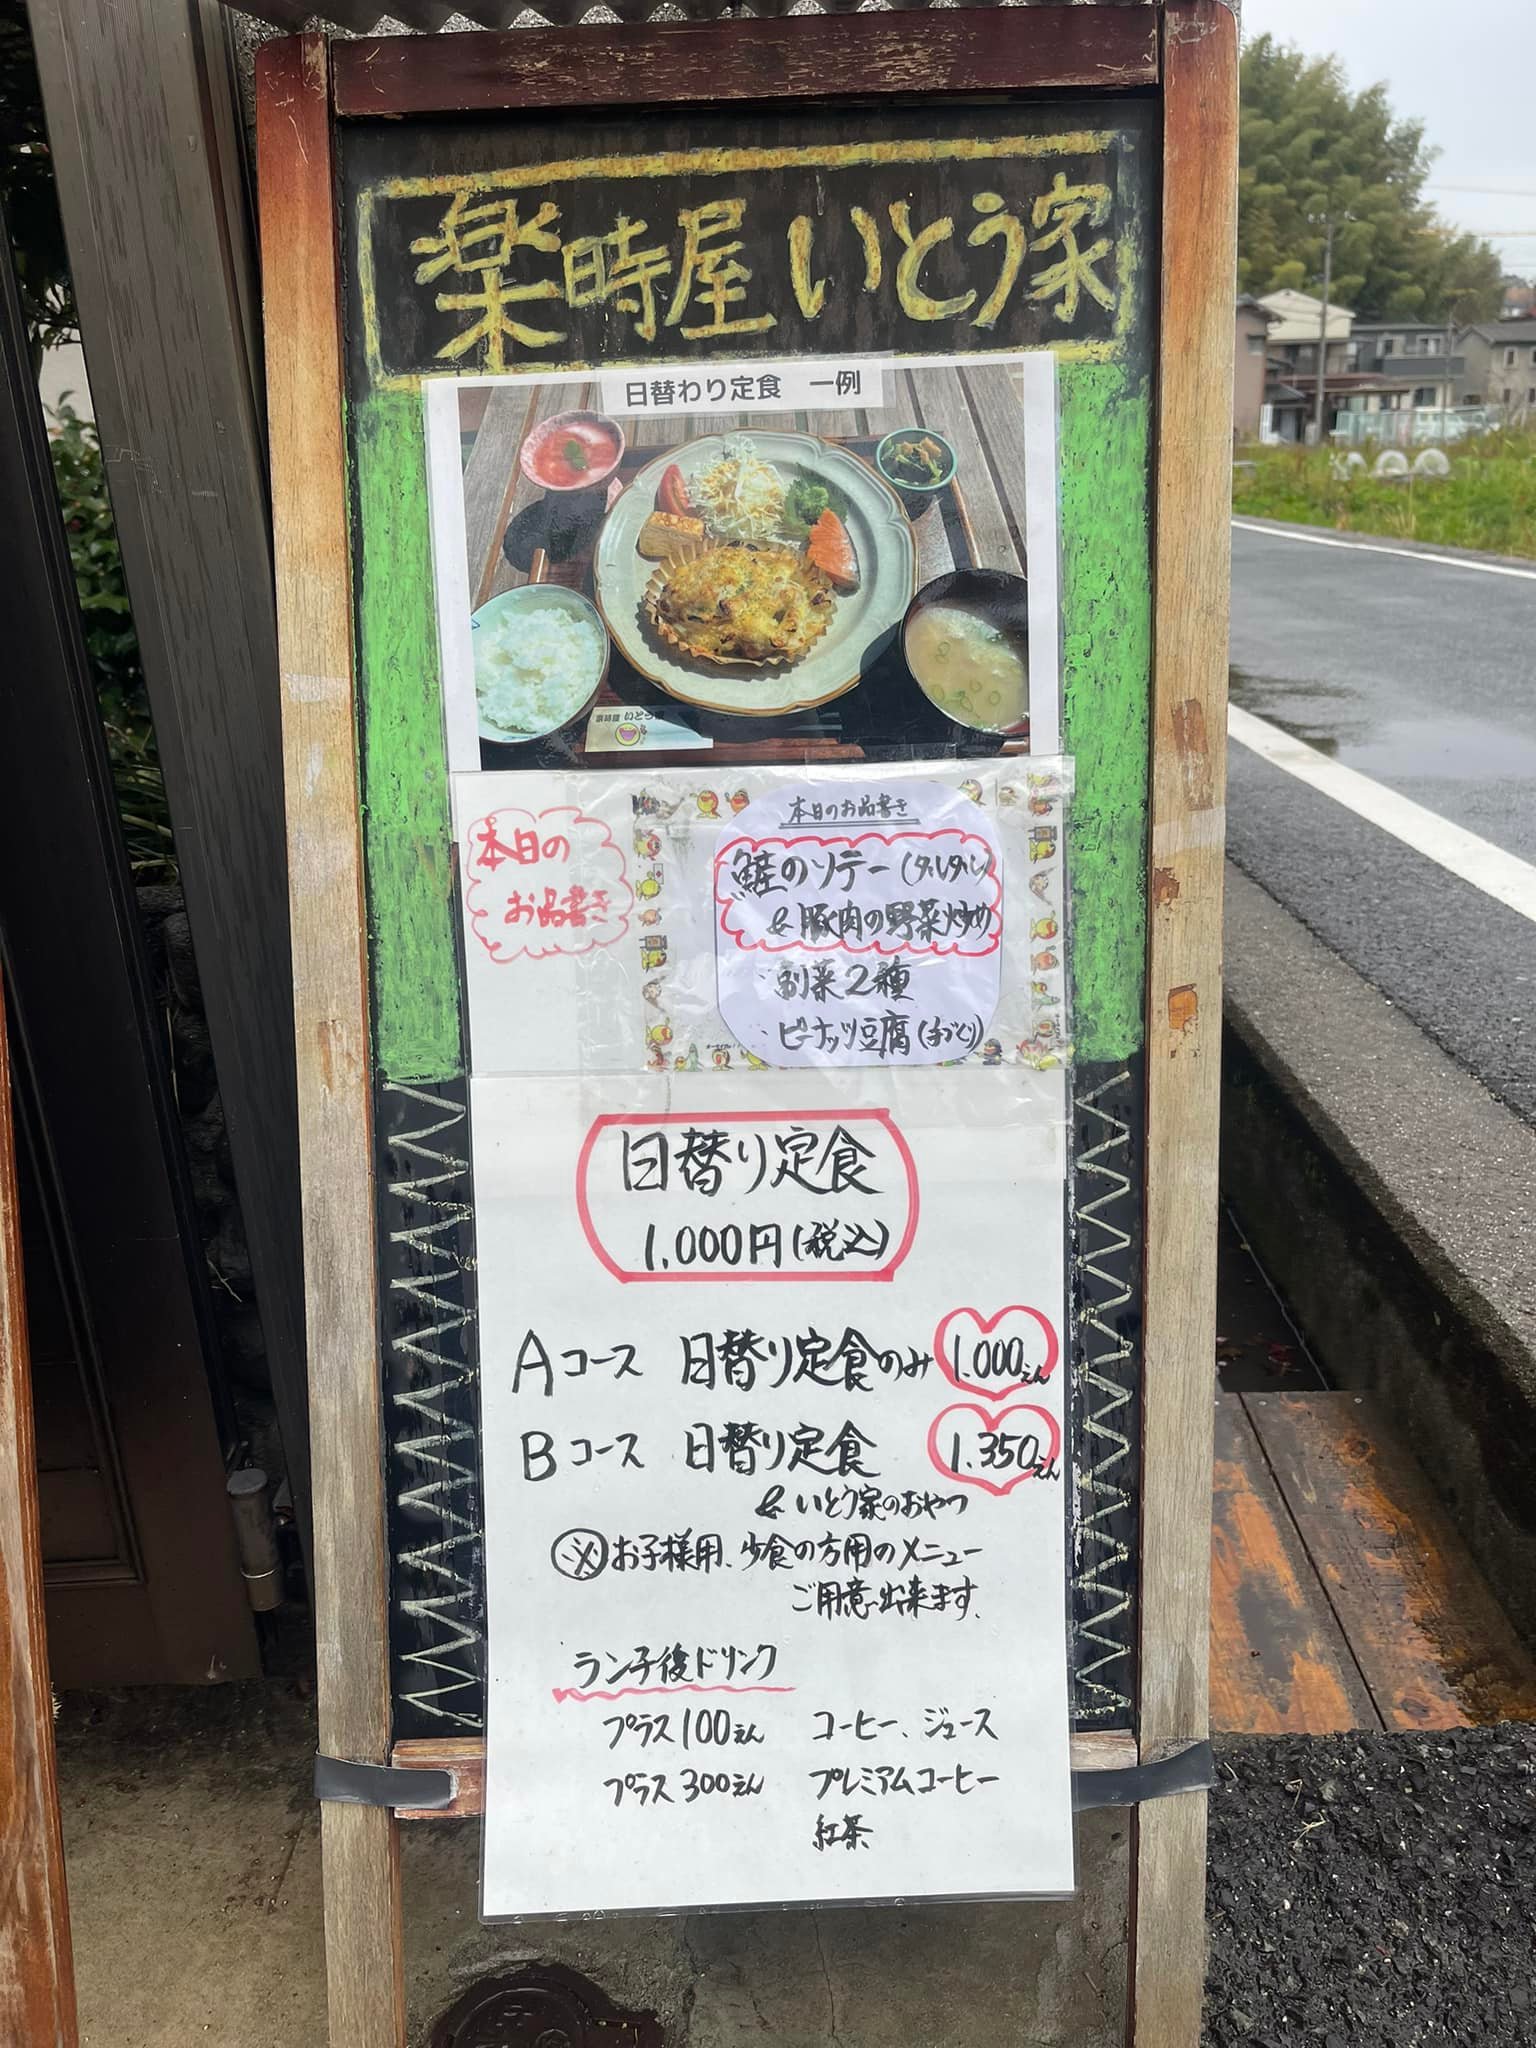 楽時屋 いとう家
日替わり定食 一例
楽時屋 いとう家
本日の
お品書き
本日のお品書き
鮭のソテー(タルタル)
& 豚肉の野菜炒め
副菜2種
ピーナッツ豆腐(手づくり)
日替り定食
1.000円(税込)
Aコース 日替り定食のみ 1.000えん
Bコース 日替り定食 1.350えん
& いとう家のおやつ
※お子様用、少食の方用のメニュー
ご用意出来ます。
ランチ後ドリンク
プラス100えん コーヒー、ジュース
プラス300えん プレミアムコーヒー
紅茶